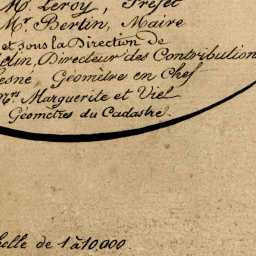 M. Leroy, Préfet
Mr. Bertin, Maire
et sous la Direction de
Directeur des Contribution
Géomètre en Chef
Mrs. Marguerite et Viel
Géomètres du Cadastre.
de 1 à 10.000.